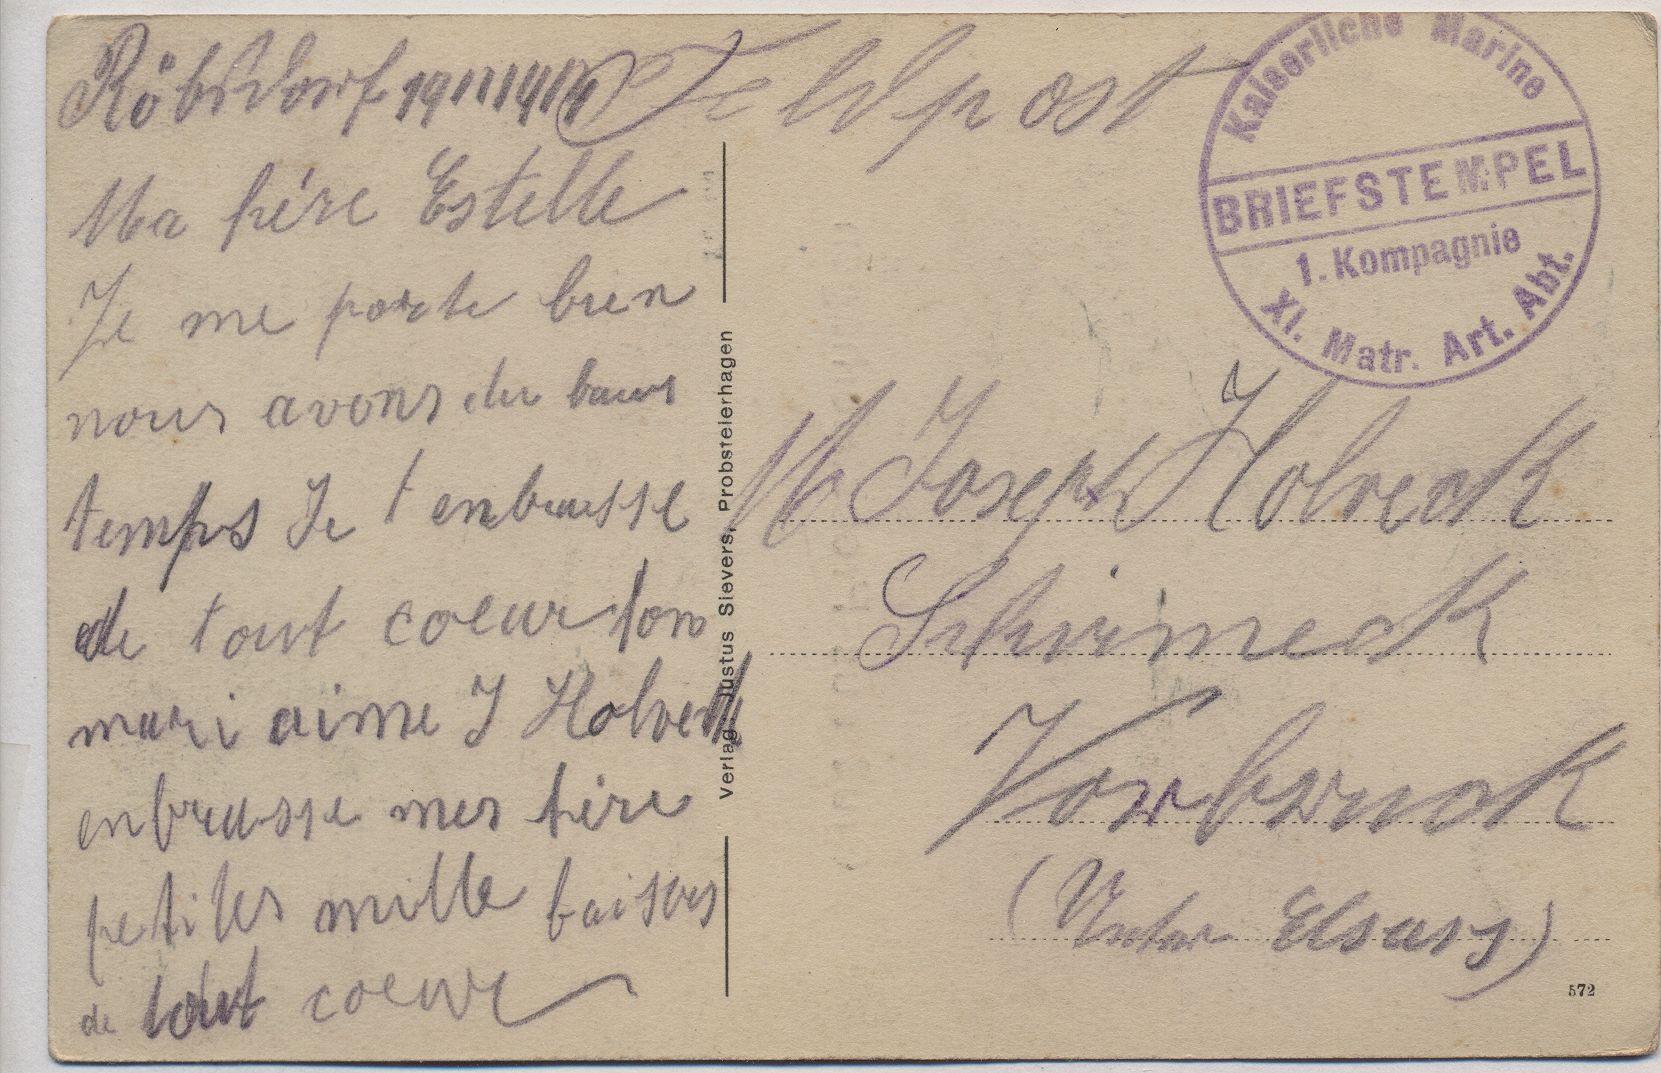 Röbsdorf 19 III 1916
Feldpost
Ma hére Estelle
Je me porte bien
nous avons du baus
temps Je t enbrasse
de tout coeur ton
mari aime J Holveck
enbrasse mes hére
petites mille baisers
de tout coeur
Kaiserliche Marine
BRIEFSTEMPEL
1. Kompagnie
XI. Matr. Art. Abt.
Verlag Justus Sievers, Probsteierhagen
M Joseph Holveck
Schirmeck
Vorbruck
(Unter Elsass)
572